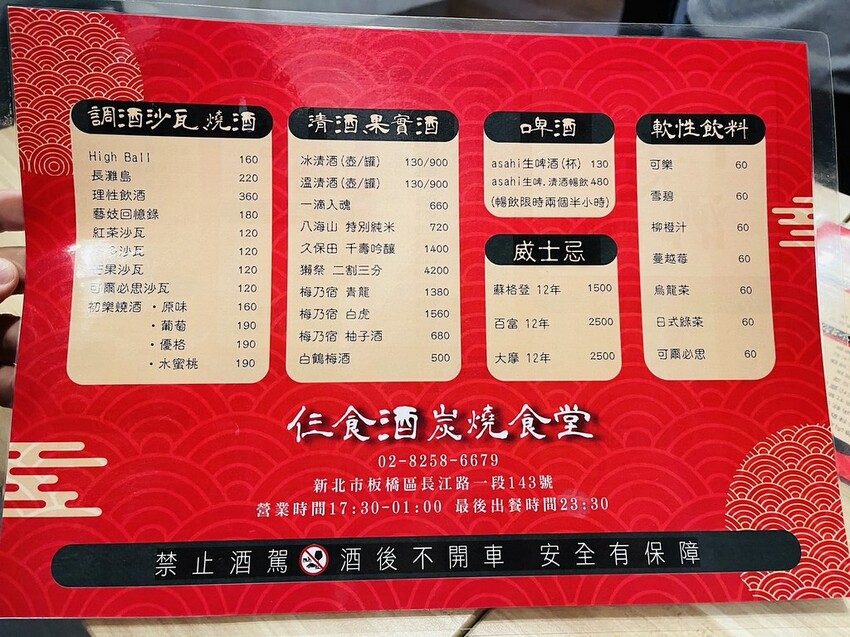 調酒沙瓦燒酒
High Ball 160
長灘島 220
理性飲酒 360
藝妓回憶錄 180
紅茶沙瓦 120
沙瓦 120
果沙瓦 120
可爾必思沙瓦 120
初樂燒酒・原味 160
・葡萄 190
・優格 190
・水蜜桃 190
清酒果實酒
冰清酒(壺/罐) 130/900
溫清酒(壺/罐) 130/900
一滴入魂 660
八海山 特別純米 720
久保田 千壽吟釀 1400
獺祭 二割三分 4200
梅乃宿 青龍 1380
梅乃宿 白虎 1560
梅乃宿 柚子酒 680
白鶴梅酒 500
啤酒
asahi生啤酒(杯) 130
asahi生啤.清酒暢飲 480
(暢飲限時兩個半小時)
威士忌
蘇格登 12年 1500
百富 12年 2500
大摩 12年 2500
軟性飲料
可樂 60
雪碧 60
柳橙汁 60
蔓越莓 60
烏龍茶 60
日式綠茶 60
可爾必思 60
仨食酒炭燒食堂
02-8258-6679
新北市板橋區長江路一段143號
營業時間17:30-01:00 最後出餐時間23:30
禁止酒駕 酒後不開車 安全有保障